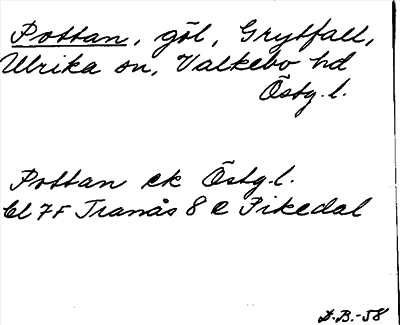 Pottan, göl, Grytfall,
Ulrika sn, Valkebo hd
Östg.l.
Pottan ek Östg.l.
Bl 7F Tranås 8 e Fikedal
D.B.-58